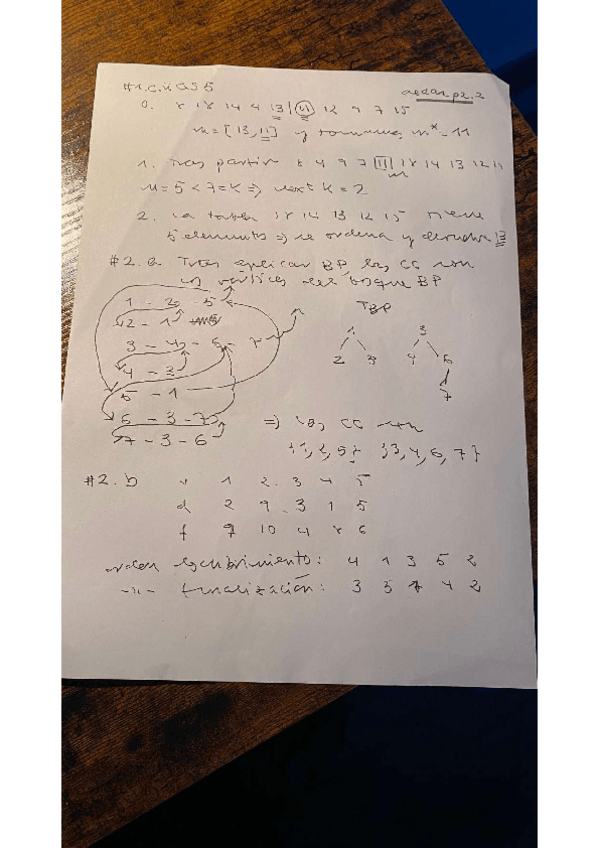 #1.c.ii QS5 aedan.p2.2
0. 8 18 14 4 13 | 11 12 9 7 15
m = [13, 11] y tomamos m* = 11
1. Tras partir 8 4 9 7 11 18 14 13 12 15
M = 5 < 7 = K => next K = 2
2. La tabla 18 14 13 12 15 tiene
5 elementos => se ordena y devuelve 13
#2.a Tras aplicar BP, las CC son
los vértices del bosque BP
1 - 2 - 5
2 - 1
TBP
3 - 4 - 6 - 7
1 3
4 - 3
2 5 4 6
5 - 1
7
6 - 3 - 7
7 - 3 - 6
=> las CC son
{1, 2, 5} {3, 4, 6, 7}
#2.b v 1 2 3 4 5
d 2 9 3 1 5
f 7 10 4 8 6
orden descubrimiento: 4 1 3 5 2
-"- finalización: 3 5 1 4 2